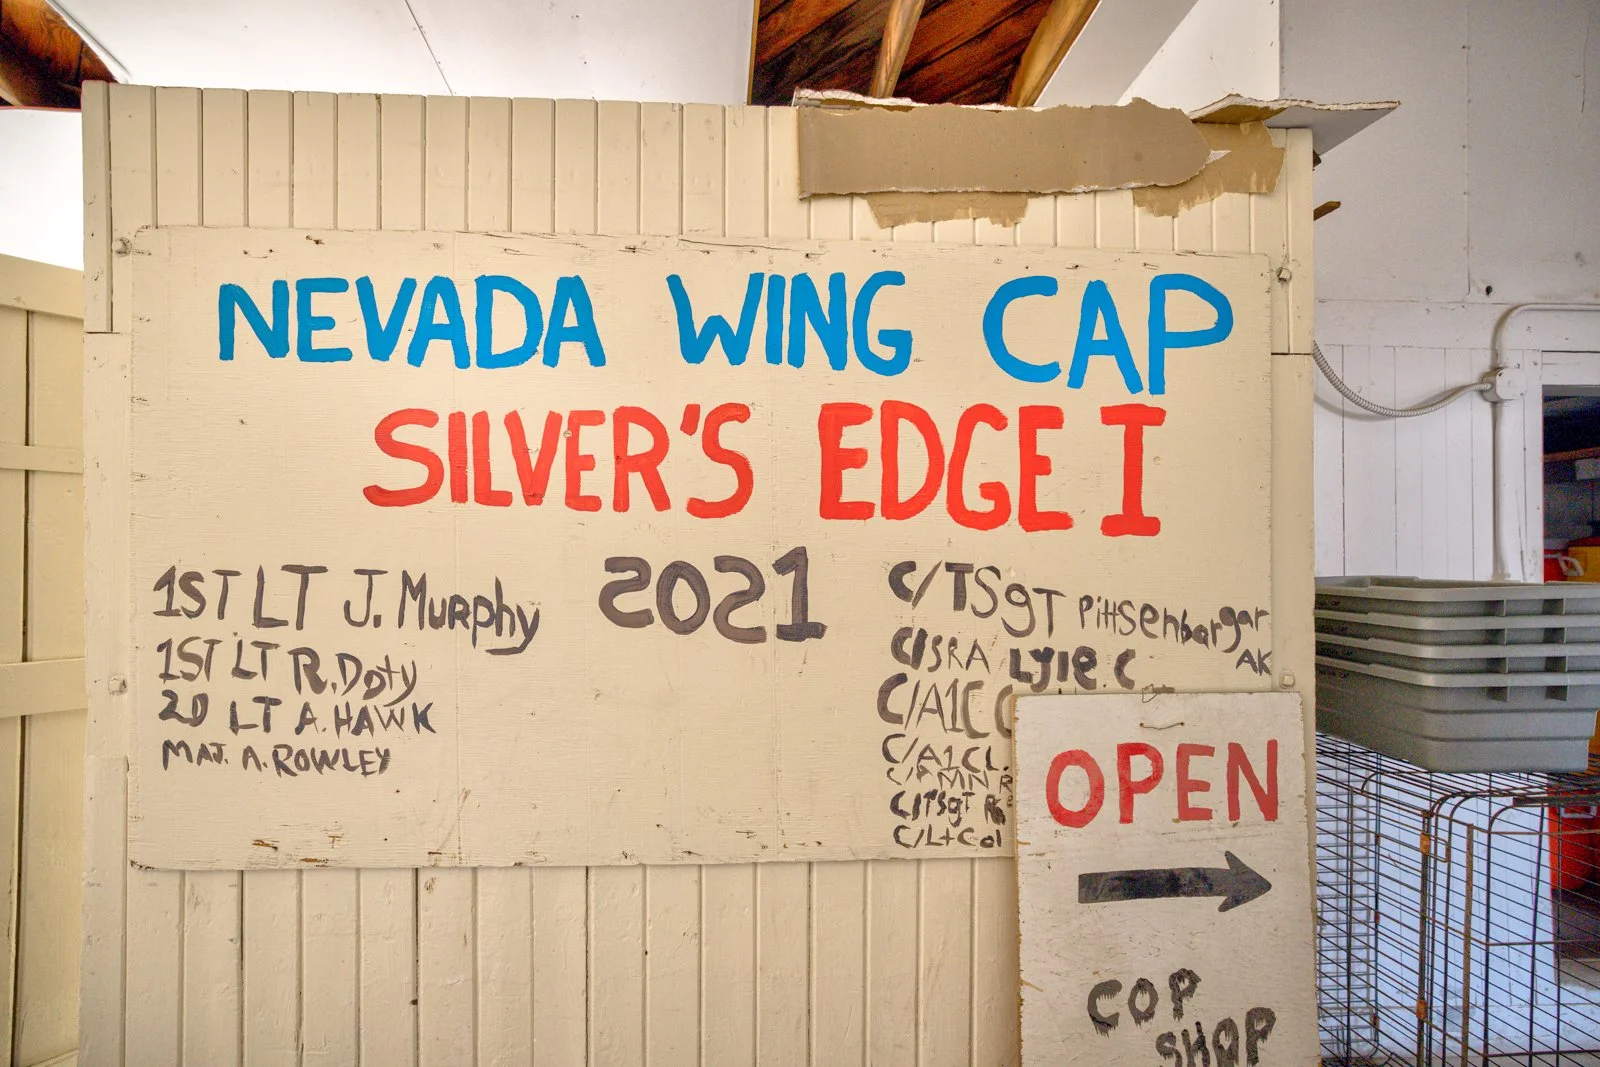 NEVADA WING CAP
SILVER'S EDGE I
2021
1ST LT J. MURPHY
1ST LT R. Doty
2D LT A. HAWK
MAJ. A. ROWLEY
C/TSgT PittSenbargar
AK
C/SRA Lyle. C
C/A1C
C/A1C L.
C/AMN R
C/TSgT
C/Lt Col
OPEN
COP
SHOP